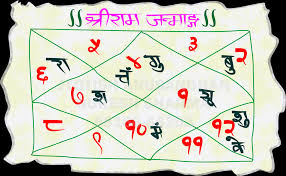 ॥ श्रीराम जन्माङ्ग ॥
५ ३
६ रा ४ गु बु २
चं
७ श १ सू
८ १० मं १२ शु
९ ११ के